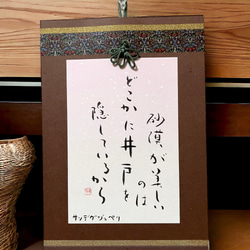 砂漠が美しい
のは
どこかに井戸を
隠しているから
サンテグジュペリ